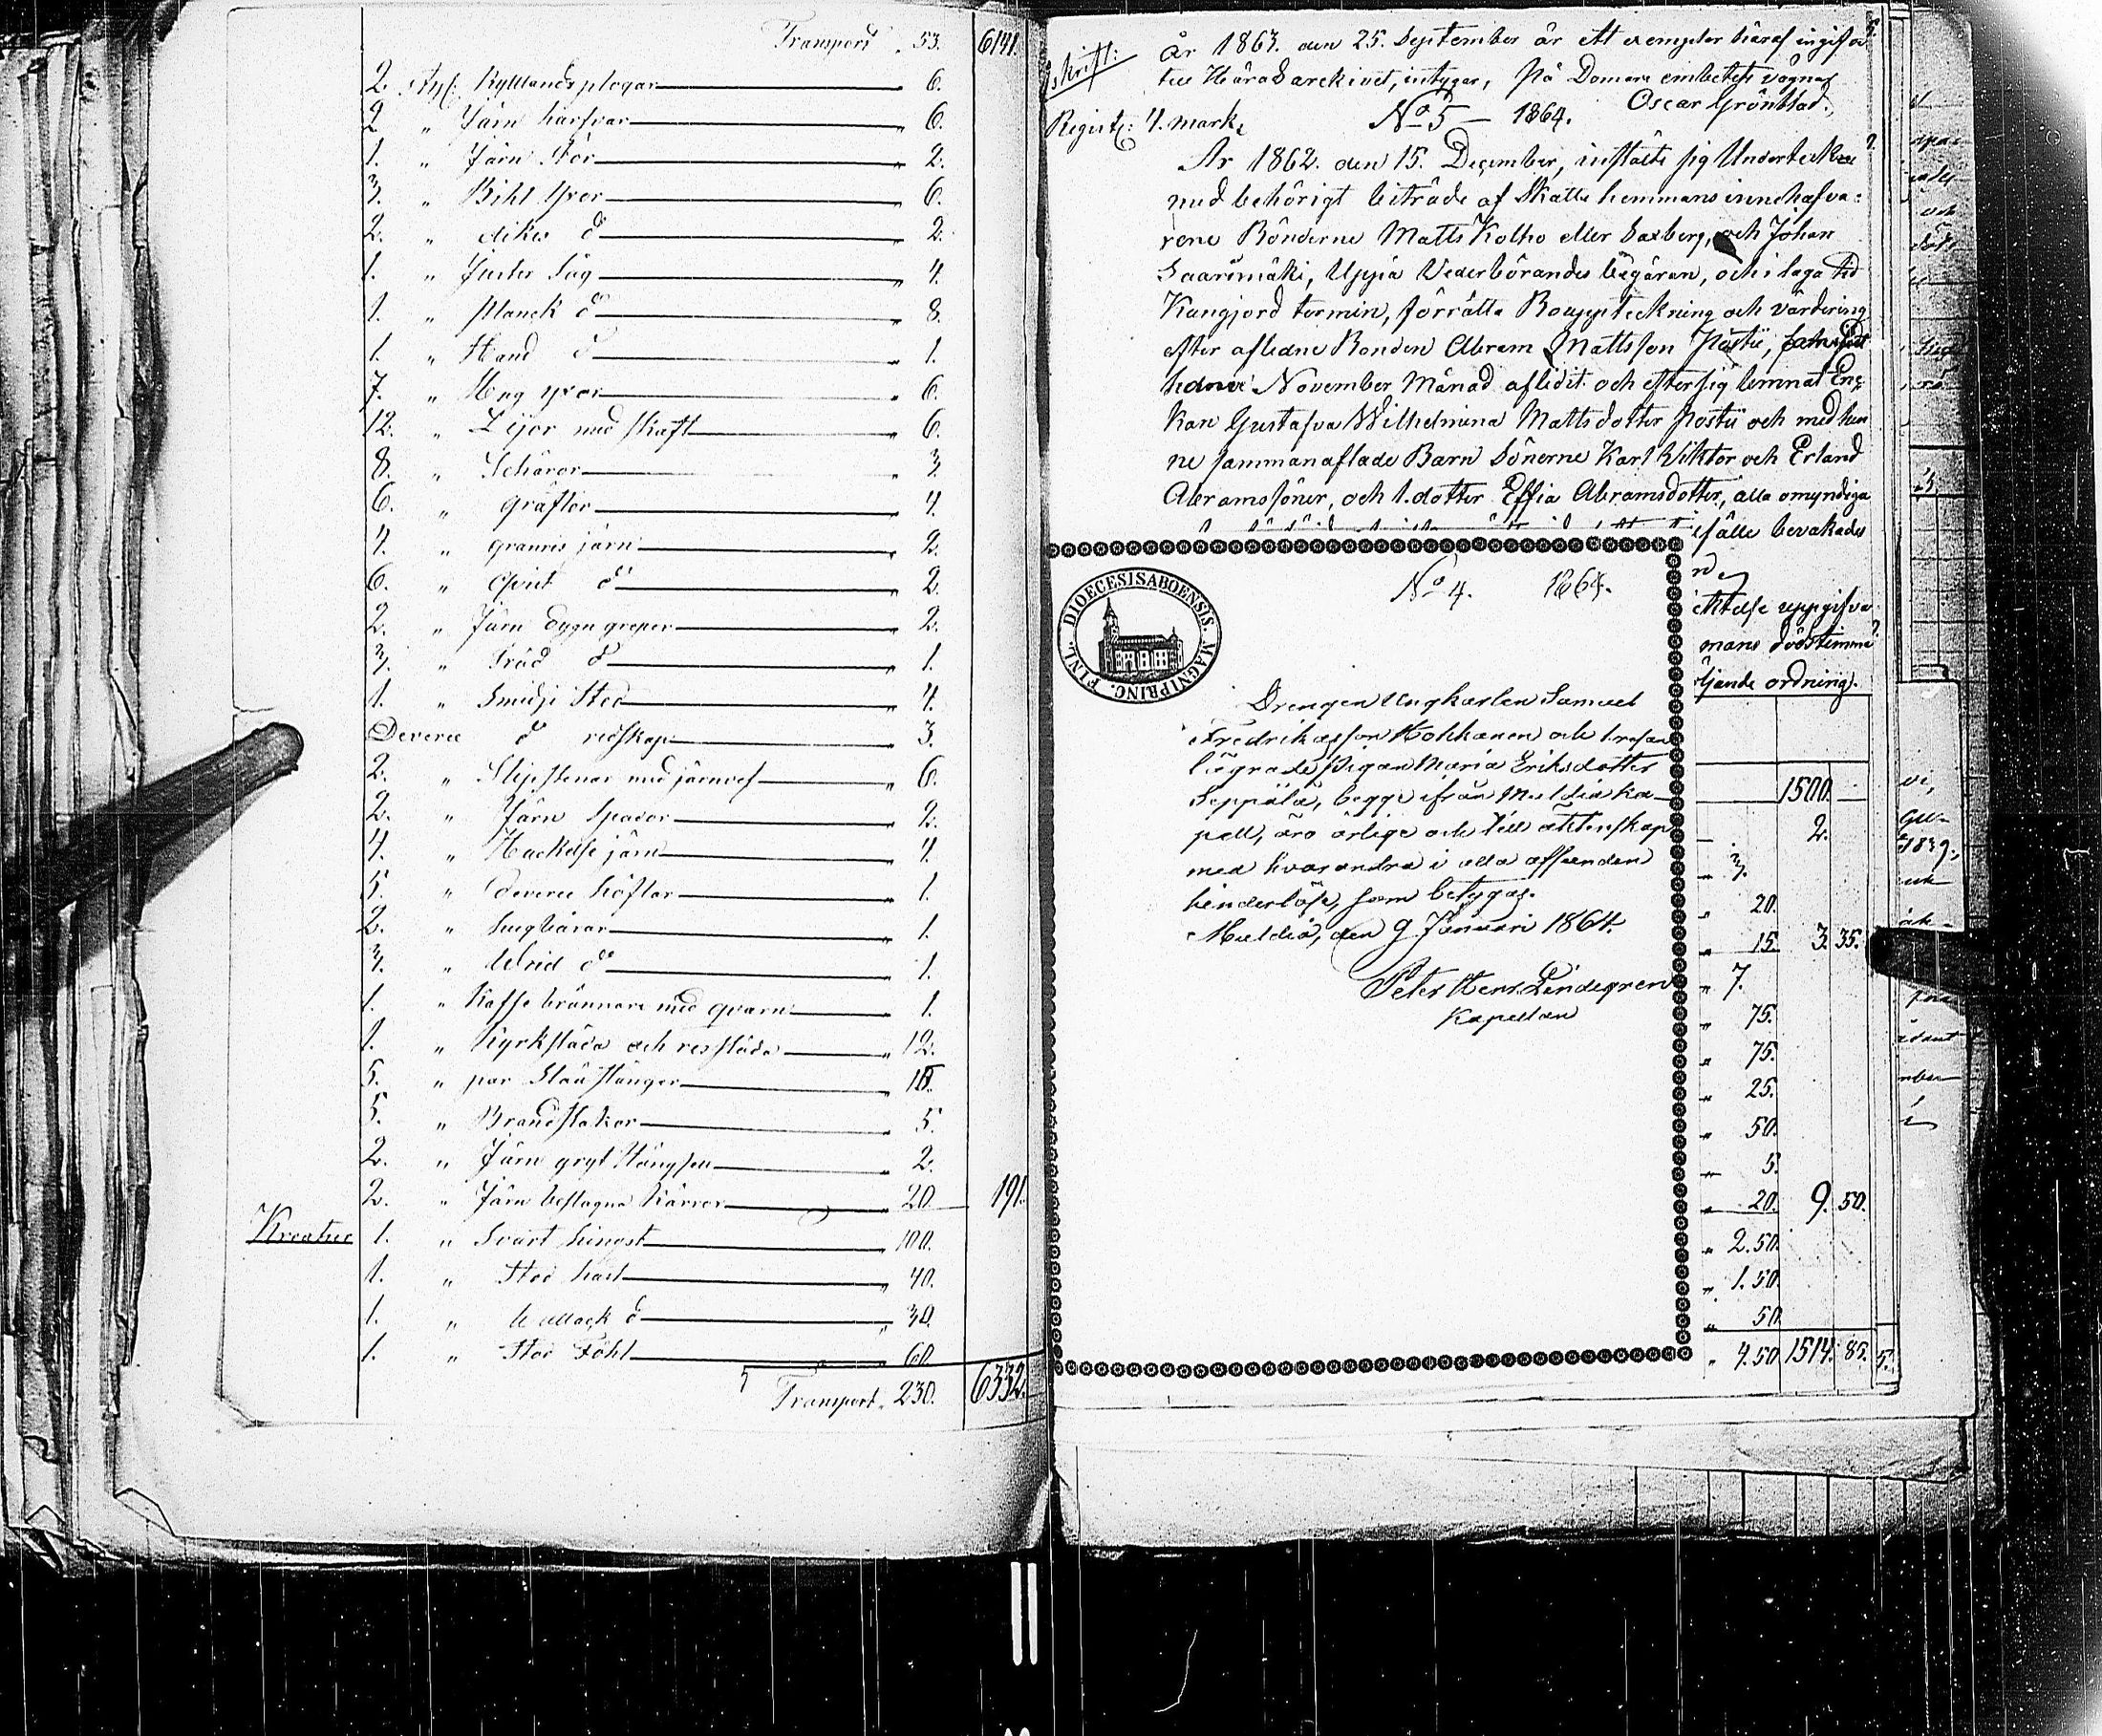 Transport „ 53. 6141.
2. st: Kyttlands plogar „ 6.
2 „ Järn harfvar „ 6.
1. „ Järn Stör „ 2.
3. „ Bihl Yxor „ 6.
2. „ dikes d:o „ 2.
1. „ Såg „ 4.
1. „ Planck d:o „ 8.
1. „ Hand d:o „ 1.
7. „ Hug yxor „ 6.
12. „ Lijor med skaft „ 6.
8. „ Schäror „ 3.
6. „ gräftor „ 4.
4. „ granris järn „ 2.
6. „ Qvist d:o „ 2.
2. „ Järn dyng greper „ 2.
3. „ Träd d:o „ 1.
1. „ Smidje Stod „ 4.
Diverse d:o redskap „ 3.
2. „ Slipstenar med järnvef „ 6.
2. „ Järn Spador „ 2.
4. „ Hackelse järn „ 4.
5. „ diverse höflar „ 1.
2. „ „ 1.
3. „ Wrid d:o „ 1.
1. „ Kaffe brännare med qvarn „ 1.
1. „ Kyrksläda och ressläda „ 12.
5. „ par Slädstänger „ 10.
5. „ Brandstakar „ 5.
2. „ Järn gryt „ 2.
2. „ Järn beslagna kärror „ 20. 191.
Kreatur 1. „ Svart hingst „ 100.
1. „ Sto häst „ 40.
1. „ Wallack d:o „ 30.
1. „ Sto Föhl „ 60
Transport „ 230. 6332.
Afskrift: År 1863. den 25. September är ett exemplar häraf ingifvit
till Häradsarckivet, intygar, På Domare embetets vägnar
Oscar Grönblad.
Registr: 4. mark, No 5 — 1864.
År 1862. den 15. December, instälte sig Undertecknad
med behörigt biträde af Skatte hemmans innehafva-
rene Bönderne Matts Kolho eller Saxberg, och Johan
Saarimäki, Uppå Vederbörandes begäran, och i laga tid
Kungjord termin, förrätta Bouppteckning och värdering
efter aflidne Bonden Abram Mattsson Pöstii,
November Månad aflidit och efter sig lemnat En-
kan Gustafva Wilhelmina Matts dotter Pöstii och med hen
ne sammanaflade Barn Sönerne Karl Viktor och Erland
Abramssöner, och 1. dotter Effia Abramsdotter, alla omyndiga
ifälle bevakades
uppgifva
mans dödstimme
ljande ordning.
No 4. 1864.
DIOECESIS ABOENSIS. MAGNI PRINC. FINL.
Drengen Ungkarlen Samuel
Fredriksson Kokkonen och
lägrade pigan Maria Eriksdotter
Seppälä, begge ifrån Multia Ka-
pell, äro ärlige och till äktenskap
med hvarandra i alla afseenden
hinderlöse, som betygas.
Multia, den 9 Januari 1864.
Peter Henr. Lindegren
Kapellan
1500.
2.
„ 3.
„ 20.
„ 15. 3. 35.
„ 7.
„ 75.
„ 75.
„ 25.
„ 50.
„ 5.
„ 20. 9. 50.
„ 2.50.
„ 1.50.
„ 50
„ 4.50. 1514. 85.
1839.,